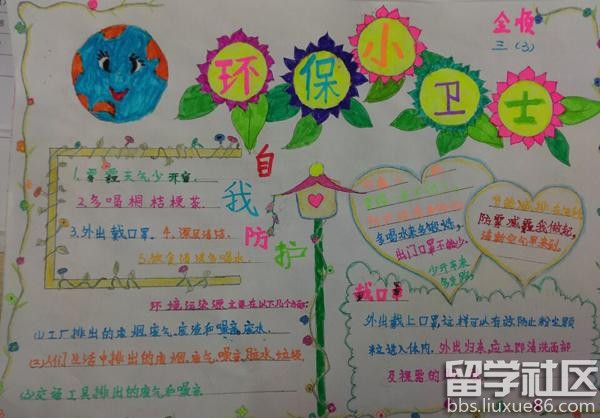 金顺
三（3）
环保小卫士
自我防护
1.雾霾天气少开窗.
2.多喝桐桔梗茶.
3.外出戴口罩.4.深层清洁.
5.饮食清淡多喝水.
多喝水来多锻炼，
出门口罩不能少.
少开车来
多走路.
节能减排
防雾减霾我做起，
清新空气早来到.
环境污染源主要在以下几个方面：
(1)工厂排出的废烟、废气、废渣和噪音、废水.
(2)人们生活中排出的废烟、废气、噪音、脏水、垃圾.
(3)交通工具排出的废气和噪音.
戴口罩
外出戴上口罩，这样可以有效防止粉尘颗
粒进入体内，外出归来，应立即清洗面部
及裸露的
留学社区
bbs.liuxue86.com